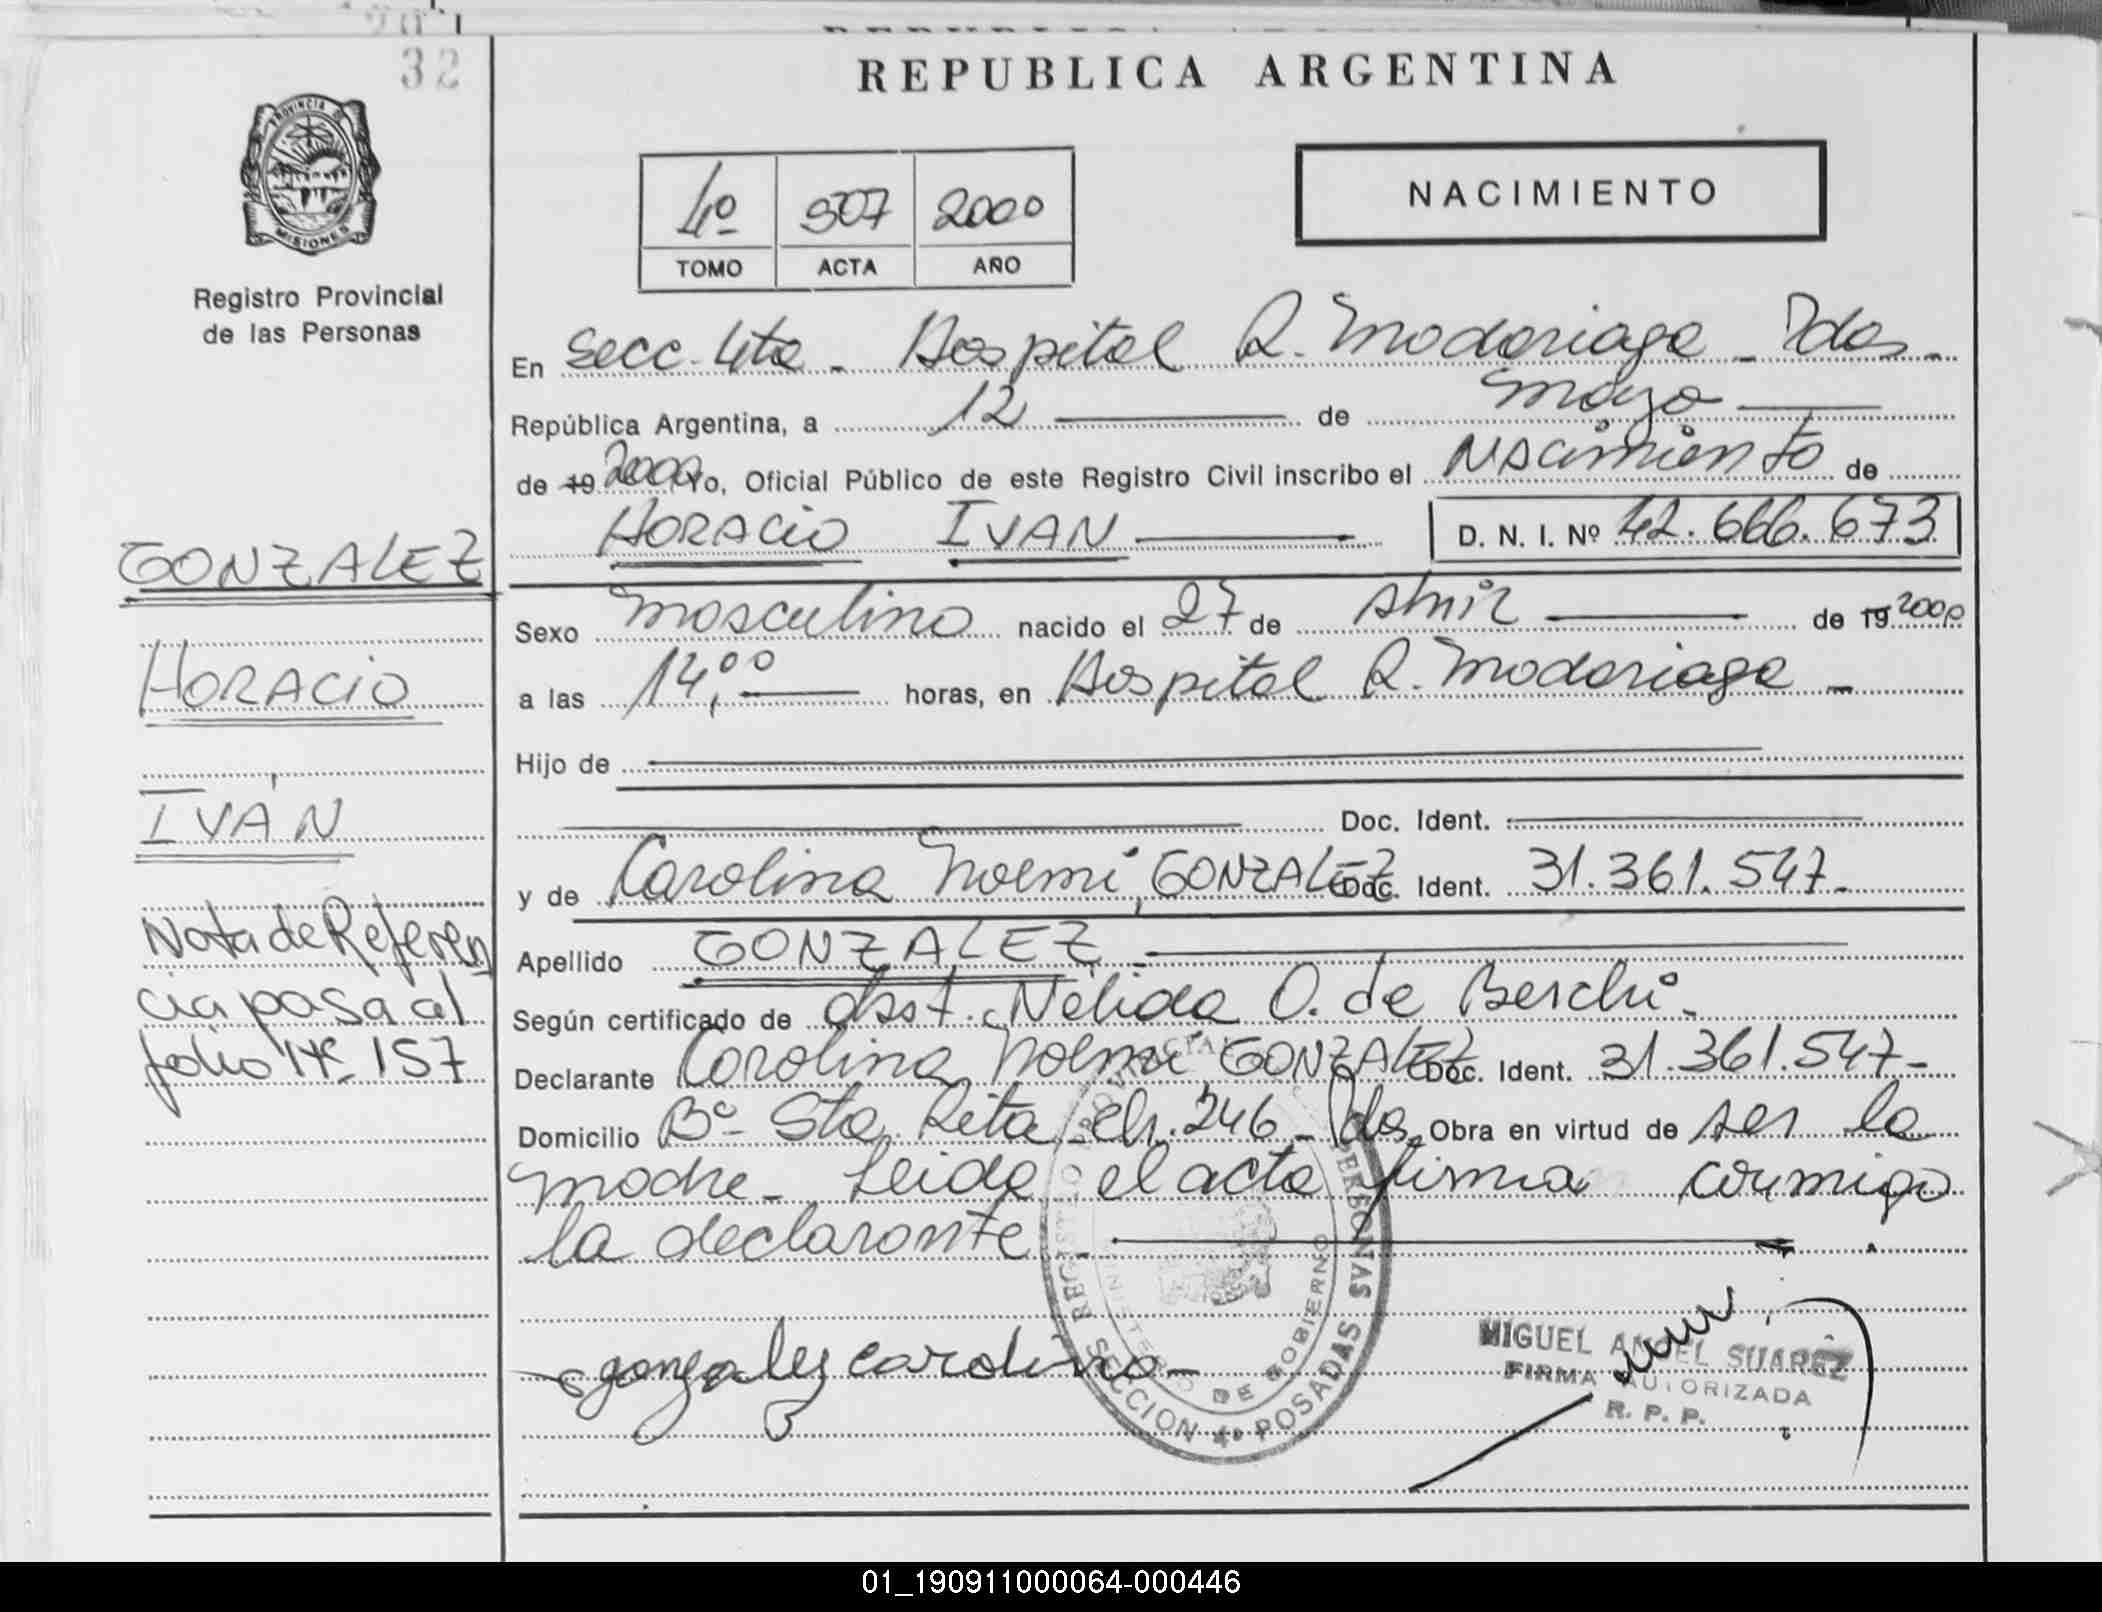 32
REPUBLICA ARGENTINA
PROVINCIA DE
MISIONES
Registro Provincial
de las Personas
4º 907 2000
TOMO ACTA AÑO
NACIMIENTO
En Secc. 4ta - Hospital R. Madariaga - Pdas -
República Argentina, a 12 de mayo
de 19 2000 Yo, Oficial Público de este Registro Civil inscribo el Nacimiento de
HORACIO IVAN D. N. I. Nº 42.666.673
GONZALEZ
HORACIO
IVÁN
Nota de Referen
cia pasa al
folio Nº 157
Sexo masculino nacido el 27 de Abril de 19 2000
a las 14,00 horas, en Hospital R. Madariaga -
Hijo de
Doc. Ident.
y de Carolina Noemí GONZALEZ Doc. Ident. 31.361.547-
Apellido GONZALEZ
Según certificado de obst. Nélida O. de Berchi.
Declarante Carolina Noemí GONZALEZ Doc. Ident. 31.361.547-
Domicilio Bº Sta Rita ch. 246 - Pdas. Obra en virtud de ser la
madre - Leida el acta firma conmigo
la declarante -
gonzalez carolina
REGISTRO PROVINCIAL PERSONAS
MINISTERIO DE GOBIERNO
SECCION 4ª POSADAS
MIGUEL ANGEL SUAREZ
FIRMA AUTORIZADA
R. P. P.
01_190911000064-000446